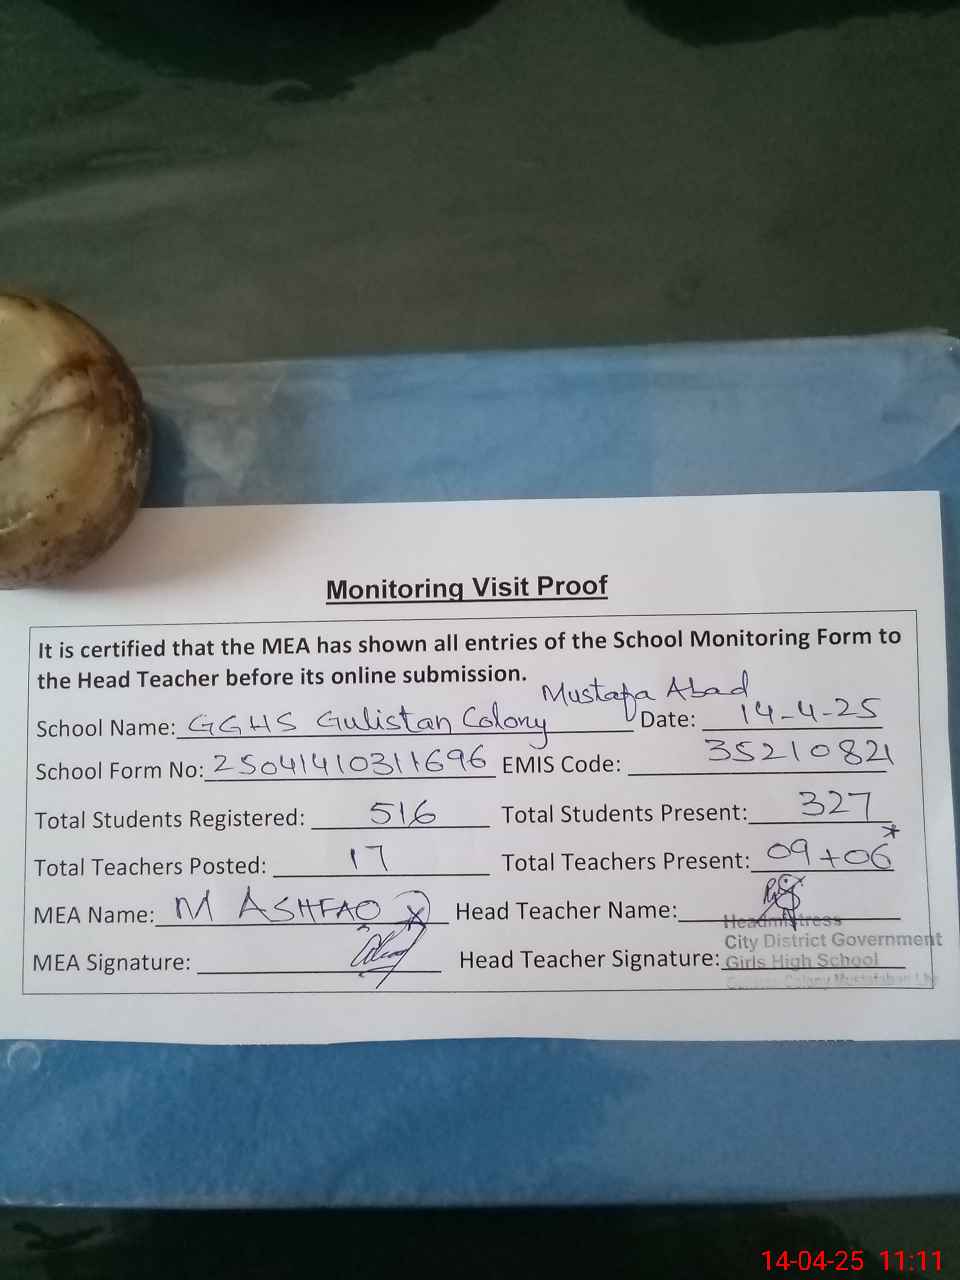 Monitoring Visit Proof
It is certified that the MEA has shown all entries of the School Monitoring Form to
the Head Teacher before its online submission.
School Name: GGHS Gulistan Colony Mustafa Abad Date: 14-4-25
School Form No: 25041410311696 EMIS Code: 35210821
Total Students Registered: 516 Total Students Present: 327
Total Teachers Posted: 17 Total Teachers Present: 09+06*
MEA Name: M ASHFAQ Head Teacher Name:
Headmistress
City District Government
MEA Signature: Head Teacher Signature: Girls High School
Colony
14-04-25 11:11